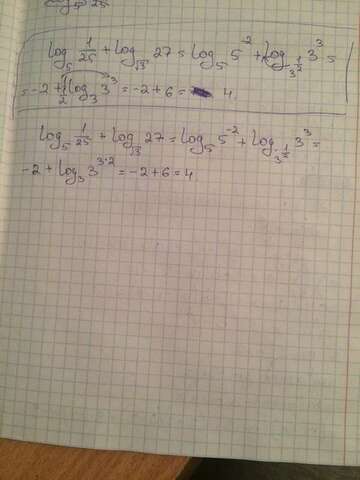 log₅ 1/25 + log_√3 27 = log₅ 5⁻² + log_3^(1/2) 3³ =
= -2 + 1/(1/2) log₃ 3³ = -2 + 6 = 4
log₅ 1/25 + log_√3 27 = log₅ 5⁻² + log_3^(1/2) 3³ =
-2 + log₃ 3^(3·2) = -2 + 6 = 4